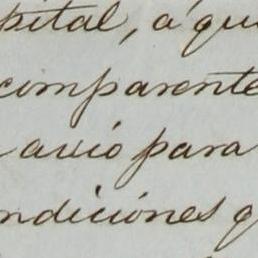 pital, á qui
comparente
avió para
ndiciónes q